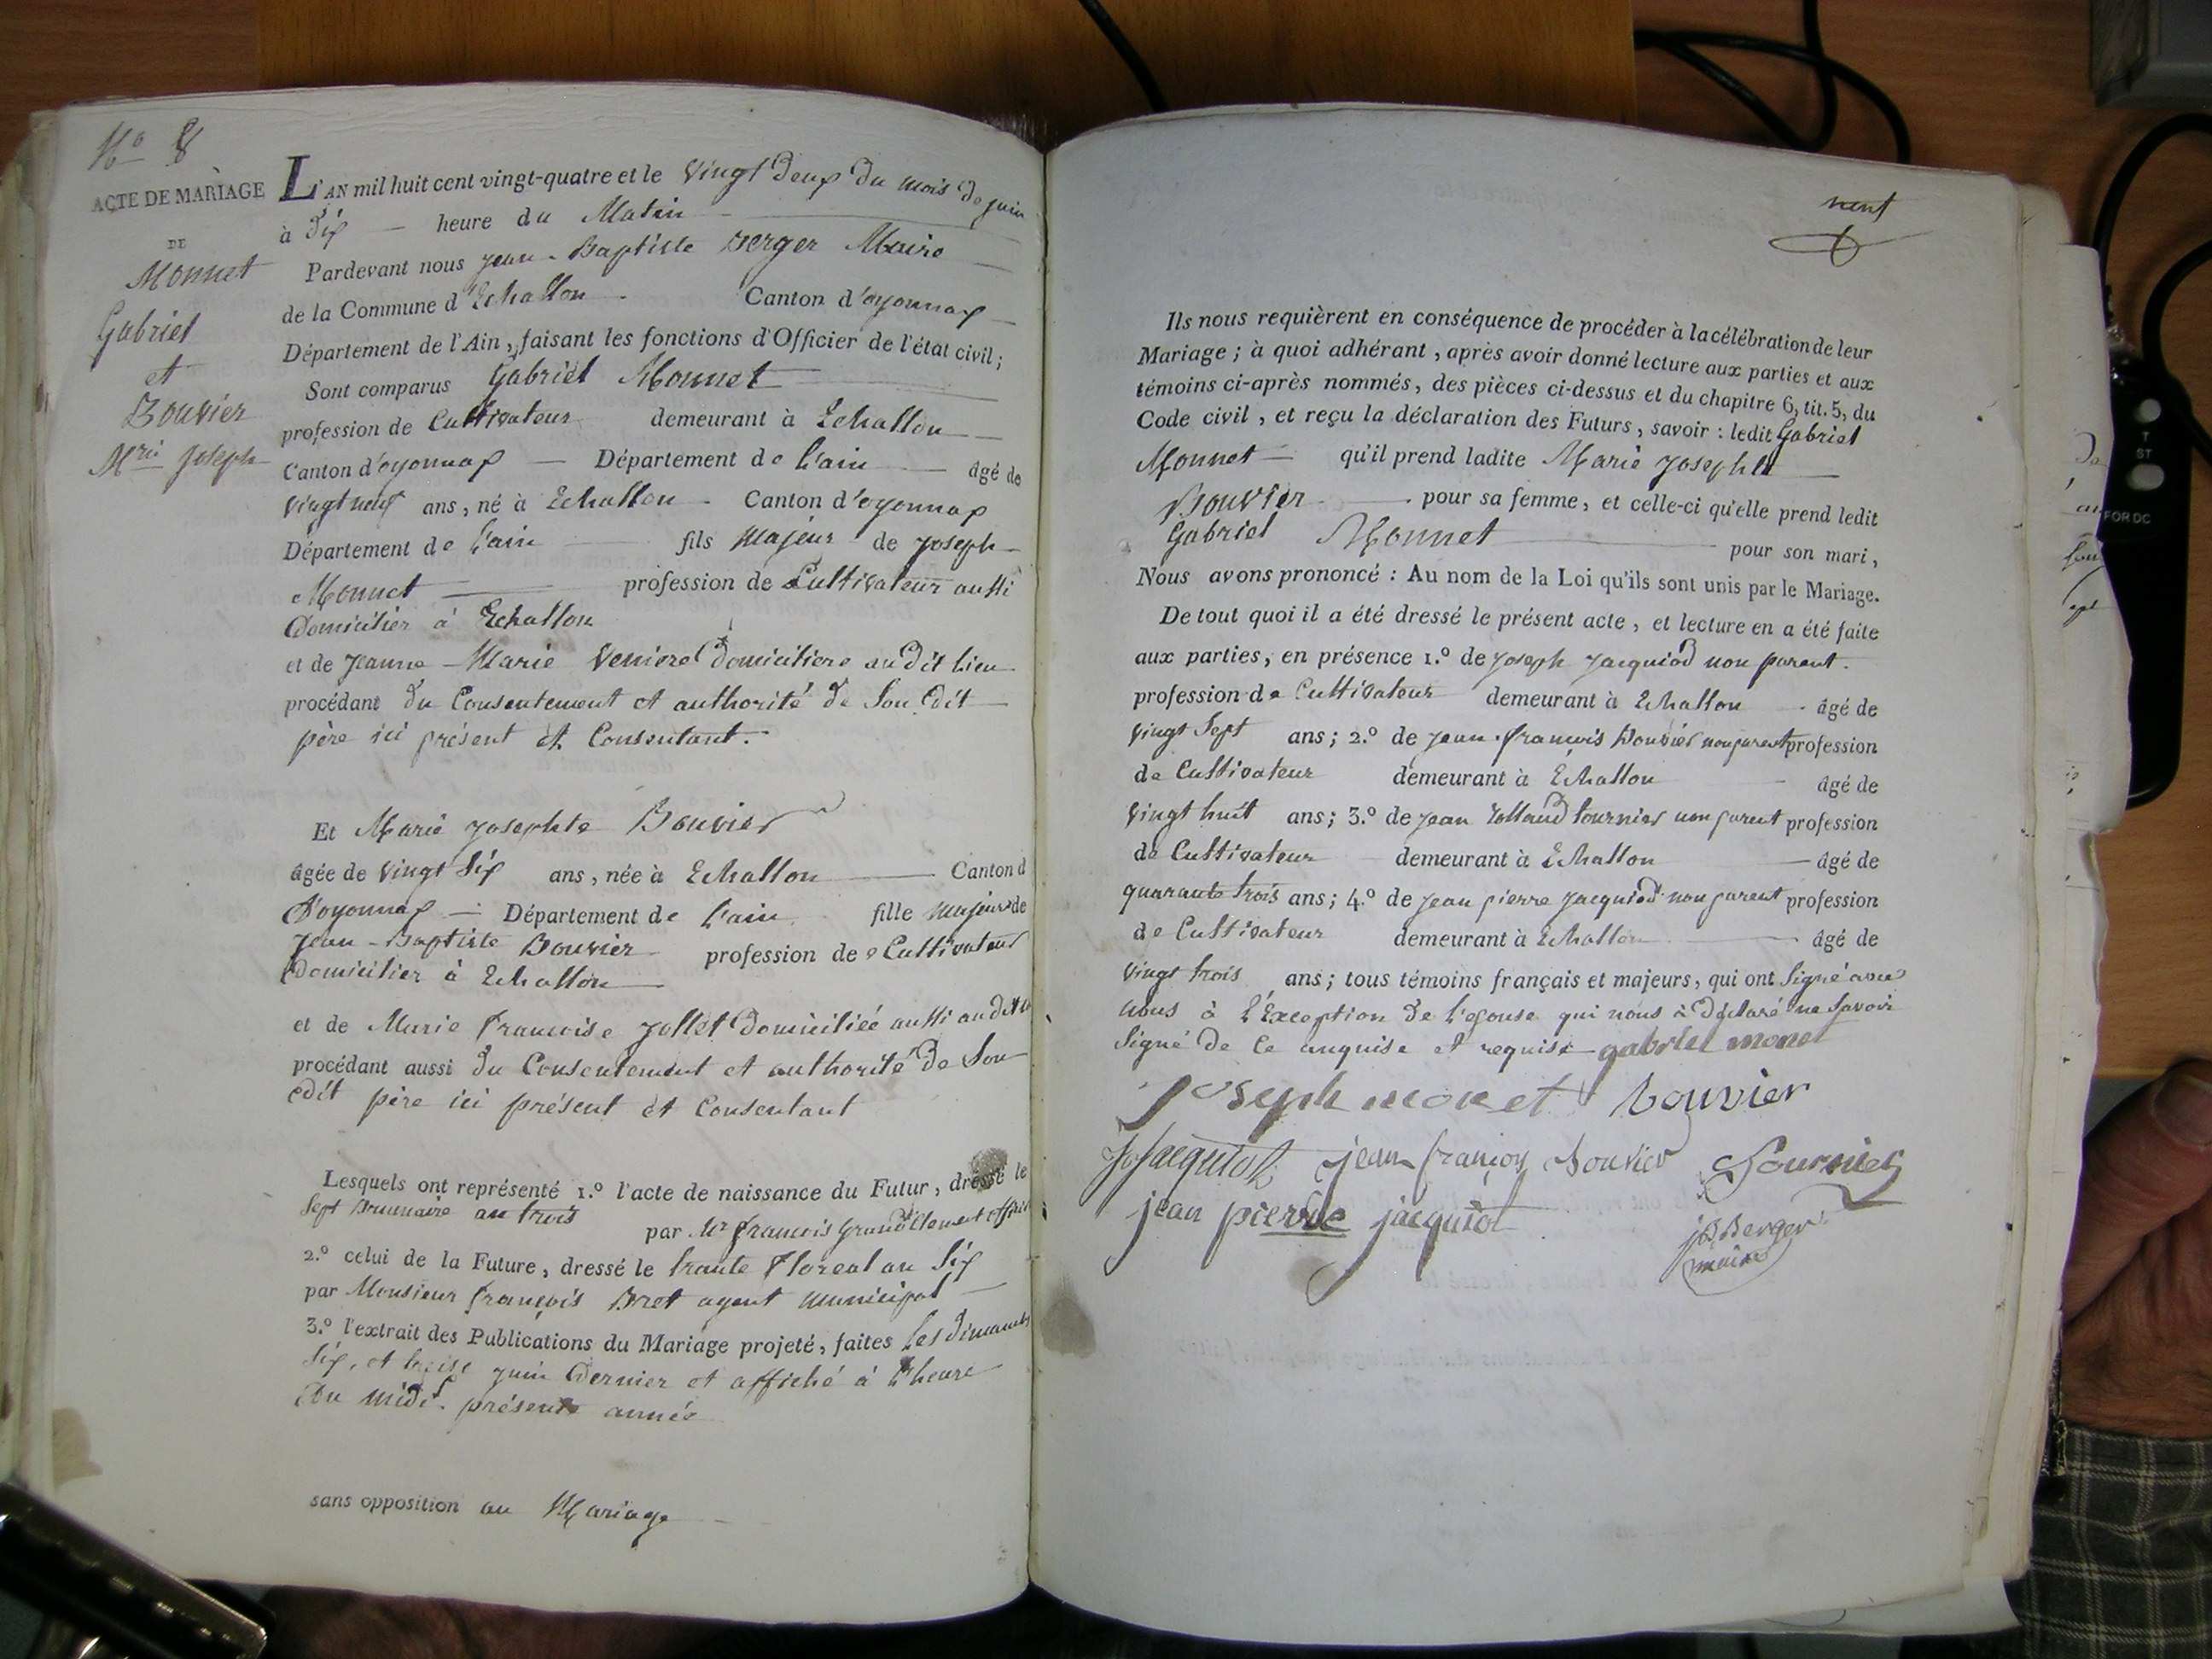 N.o 8
ACTE DE MARIAGE
DE
Monnet
Gabriel
et
Bouvier
Mrie Joseph
L'AN mil huit cent vingt-quatre et le vingt deux du mois de juin
à dix heure du Matin
Pardevant nous jean-Baptiste Berger Maire
de la Commune d'Echallon Canton d'oyonnax
Département de l'Ain, faisant les fonctions d'Officier de l'état civil;
Sont comparus Gabriel Monnet
profession de Cultivateur demeurant à Echallon
Canton d'oyonnax Département de l'ain âgé de
vingt neuf ans, né à Echallon Canton d'oyonnax
Département de l'ain fils Majeur de joseph
Monnet profession de Cultivateur aussi
domicilier à Echallon
et de jeanne Marie domiciliere au dit lieu
procédant du Consentement et authorité de Son dit
père ici présent et Consentant.
Et Marie josephte Bouvier
âgée de vingt Six ans, née à Echallon Canton d
D'oyonnax Département de l'ain fille majeur de
jean-Baptiste Bouvier profession de Cultivateur
domicilier à Echallon
et de Marie francoise jollet domiciliée aussi au dit
procédant aussi du Consentement et authorité de Son
dit père ici présent et Consentant
Lesquels ont représenté 1.º l'acte de naissance du Futur, dressé le
Sept Brumaire an trois par Mr françois Grandclement
2.º celui de la Future, dressé le trante Floreal an Six
par Monsieur françois Bret agent municipal
3.º l'extrait des Publications du Mariage projeté, faites les dimanches
Six, et treise juin dernier et affiché à l'heure
du midi. présente année
sans opposition au Mariage
neuf
Ils nous requièrent en conséquence de procéder à la célébration de leur
Mariage; à quoi adhérant, après avoir donné lecture aux parties et aux
témoins ci-après nommés, des pièces ci-dessus et du chapitre 6, tit. 5, du
Code civil, et reçu la déclaration des Futurs, savoir: ledit Gabriel
Monnet qu'il prend ladite Marie josephte
Bouvier pour sa femme, et celle-ci qu'elle prend ledit
Gabriel Monnet pour son mari,
Nous avons prononcé: Au nom de la Loi qu'ils sont unis par le Mariage.
De tout quoi il a été dressé le présent acte, et lecture en a été faite
aux parties, en présence 1.º de joseph jacquiod non parent.
profession de Cultivateur demeurant à Echallon âgé de
vingt Sept ans; 2.º de jean-françois Bouvier non parent profession
de Cultivateur demeurant à Echallon âgé de
vingt huit ans; 3.º de jean tournier non parent profession
de Cultivateur demeurant à Echallon âgé de
quarante trois ans; 4.º de jean pierre jacquiod non parent profession
de Cultivateur demeurant à Echallon âgé de
vingt trois ans; tous témoins français et majeurs, qui ont Signé avec
nous à l'Exception de l'epouse qui nous à déclaré ne Savoir
Signé de ce enquise et requise gabriel monet
joseph monet bouvier
jacquiot jean françoy bouvier Tournier
jean pierre jacquiot
jB Berger
maire
T
ST
FOR DC